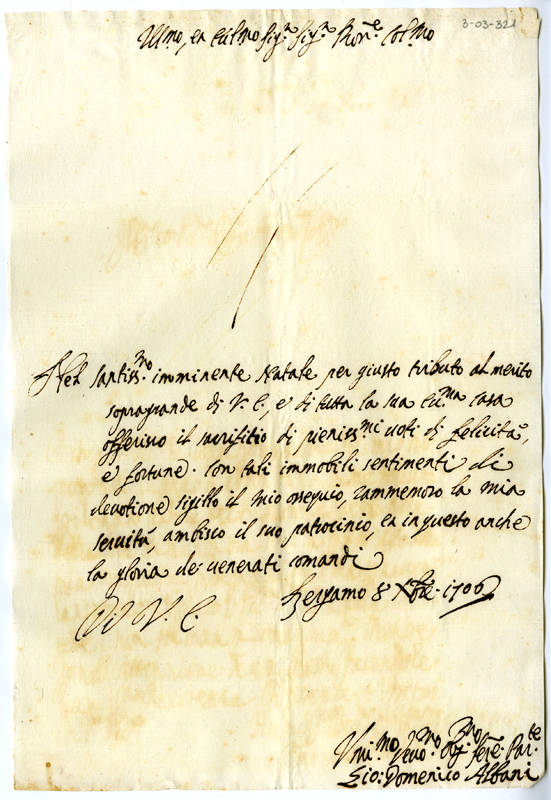 3-03-321
Ill.mo, ed Ecc.mo Sig.r Sig.r Pron.e Col.mo
Nel santiss.mo imminente Natale per giusto tributo al merito
sopragrande di V. E., e di tutta la sua Ecc.ma casa
offerisco il sacrifitio di pieniss.mi voti di felicità,
e fortune. Con tali immobili sentimenti di
devotione sigillo il mio ossequio, rammemoro la mia
servitù, ambisco il suo patrocinio, ed in questo anche
la gloria de venerati comandi
Di V. E. Bergamo 8 Xbre. 1706
Umi.mo Devo.mo Obb.mo Ser.e Par.te
Gio: Domenico Albani